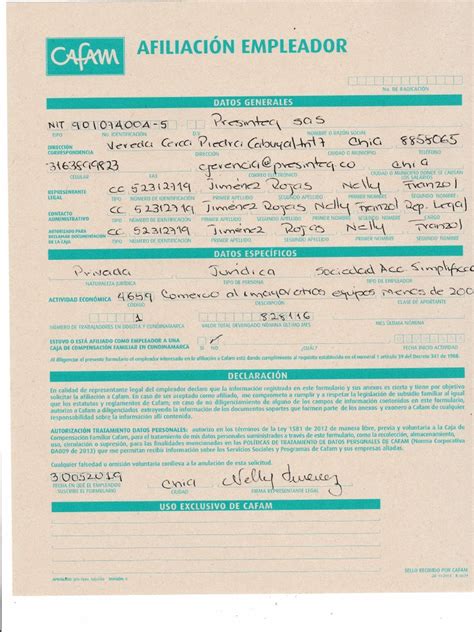 CAFAM
AFILIACIÓN EMPLEADOR
No. DE RADICACIÓN
DATOS GENERALES
NIT 901094004-5 Presinteq SAS
TIPO No. IDENTIFICACIÓN D.V. NOMBRE O RAZÓN SOCIAL
DIRECCIÓN CORRESPONDENCIA Vereda Cerca Piedra Chia 8858065
DIRECCIÓN CIUDAD O MUNICIPIO TELÉFONO
gerencia@presinteq.co chia
CELULAR FAX CORREO ELECTRÓNICO CIUDAD O MUNICIPIO DONDE SE CAUSAN LOS SALARIOS
REPRESENTANTE LEGAL CC 52312719 Jiménez Rojas Nelly
TIPO NÚMERO DE IDENTIFICACIÓN PRIMER APELLIDO SEGUNDO APELLIDO PRIMER NOMBRE SEGUNDO NOMBRE
CONTACTO ADMINISTRATIVO CC 52312719 Jiménez Rojas Nelly Rep. Legal
TIPO NÚMERO DE IDENTIFICACIÓN PRIMER APELLIDO SEGUNDO APELLIDO
AUTORIZADO PARA RECLAMAR DOCUMENTACIÓN DE LA CAJA CC 52312719 Jiménez Rojas Nelly
TIPO NÚMERO DE IDENTIFICACIÓN PRIMER APELLIDO SEGUNDO APELLIDO PRIMER NOMBRE SEGUNDO NOMBRE
DATOS ESPECÍFICOS
Privada Jurídica Sociedad Acc Simplifica
NATURALEZA JURÍDICA TIPO DE PERSONA TIPO DE EMPLEADOR
ACTIVIDAD ECONÓMICA 4659 Comercio al mayor otros equipos Menos de 200
CÓDIGO DESCRIPCIÓN CLASE DE APORTANTE
1 828116
NÚMERO DE TRABAJADORES EN BOGOTÁ Y CUNDINAMARCA VALOR TOTAL DEVENGADO NÓMINA ÚLTIMO MES MES ÚLTIMA NÓMINA
ESTUVO O ESTÁ AFILIADO COMO EMPLEADOR A UNA CAJA DE COMPENSACIÓN FAMILIAR EN CUNDINAMARCA SI NO CUÁL? FECHA INICIO ACTIVIDAD
Al diligenciar el presente formulario el empleador interesado en la afiliación a Cafam está dando cumplimiento al requisito establecido en el numeral 1 artículo 39 del Decreto 341 de 1988.
DECLARACIÓN
En calidad de representante legal del empleador declaro que la información registrada en este formulario y sus anexos es cierta y tiene por objetivo
solicitar la afiliación a Cafam. En caso de ser aceptado como afiliado, me comprometo a cumplir y a respetar la legislación de subsidio familiar al igual
que los estatutos y reglamentos de Cafam; en caso de no diligenciamiento de algún de los campos contenidos en el presente formulario,
autorizo a Cafam a diligenciarlos extrayendo la información de los documentos soportes que forman parte de los anexos y exonero a Cafam de cualquier
responsabilidad sobre la información allí contenida.
AUTORIZACIÓN TRATAMIENTO DATOS PERSONALES: autorizo en los términos de la Ley 1581 de 2012 de manera libre, previa y voluntaria a la Caja de
Compensación Familiar Cafam, para el tratamiento de mis datos personales suministrados a través de este formulario, como la recolección, almacenamiento,
uso, circulación o supresión, para las finalidades mencionadas en las POLÍTICAS DE TRATAMIENTO DE DATOS PERSONALES DE CAFAM (Norma Corporativa
DA009 de 2013) y me permitan recibir información sobre los Servicios Sociales y Programas de Cafam y sus empresas aliadas.
Cualquier falsedad u omisión voluntaria conlleva a la anulación de esta solicitud.
30052019 chia Nelly Jimenez
FECHA EN QUE EL EMPLEADOR SUSCRIBE EL FORMULARIO CIUDAD FIRMA REPRESENTANTE LEGAL
USO EXCLUSIVO DE CAFAM
SELLO RECIBIDO POR CAFAM